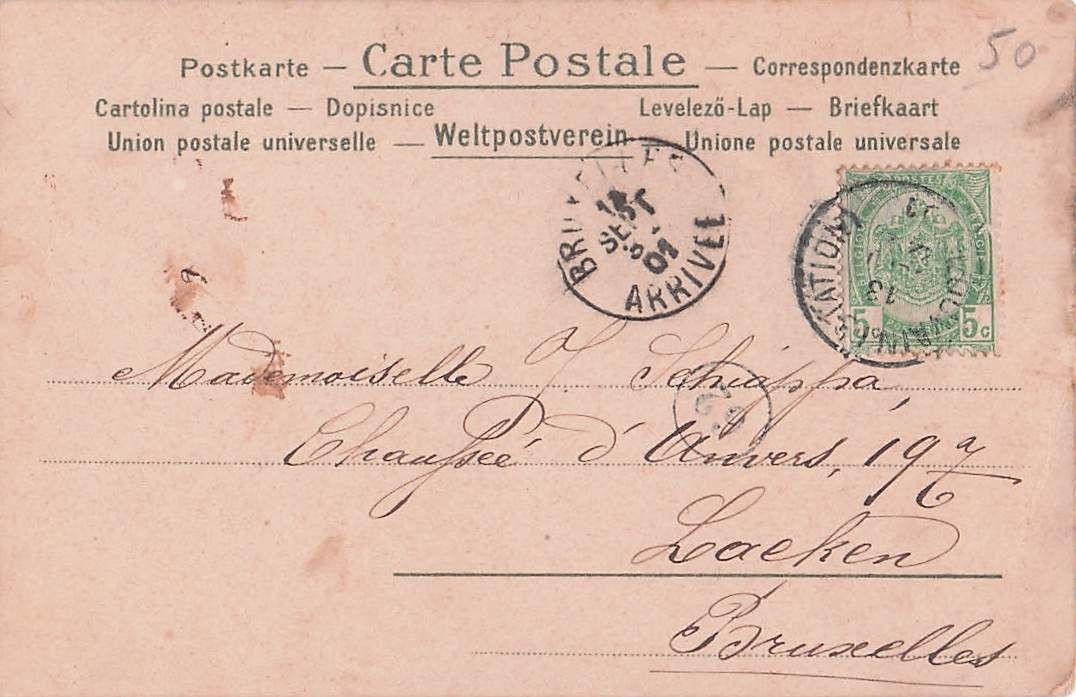 50
Postkarte — Carte Postale — Correspondenzkarte
Cartolina postale — Dopisnice Levelező-Lap — Briefkaart
Union postale universelle — Weltpostverein Unione postale universale
BRUXELLES
SEPT
01
ARRIVEE
(STATION)
13
5 5c
Mademoiselle J. Schiappa,
Chaussée d'Anvers, 197
Laeken
Bruxelles